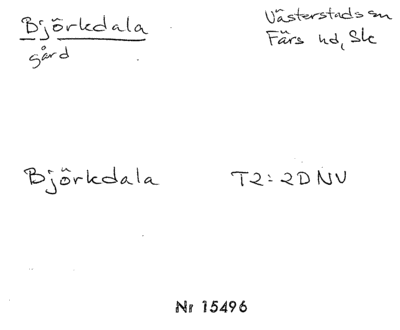 Björkdala
gård
Västerstads sn
Färs hd, Sk
Björkdala T2:2DNV
Nr 15496